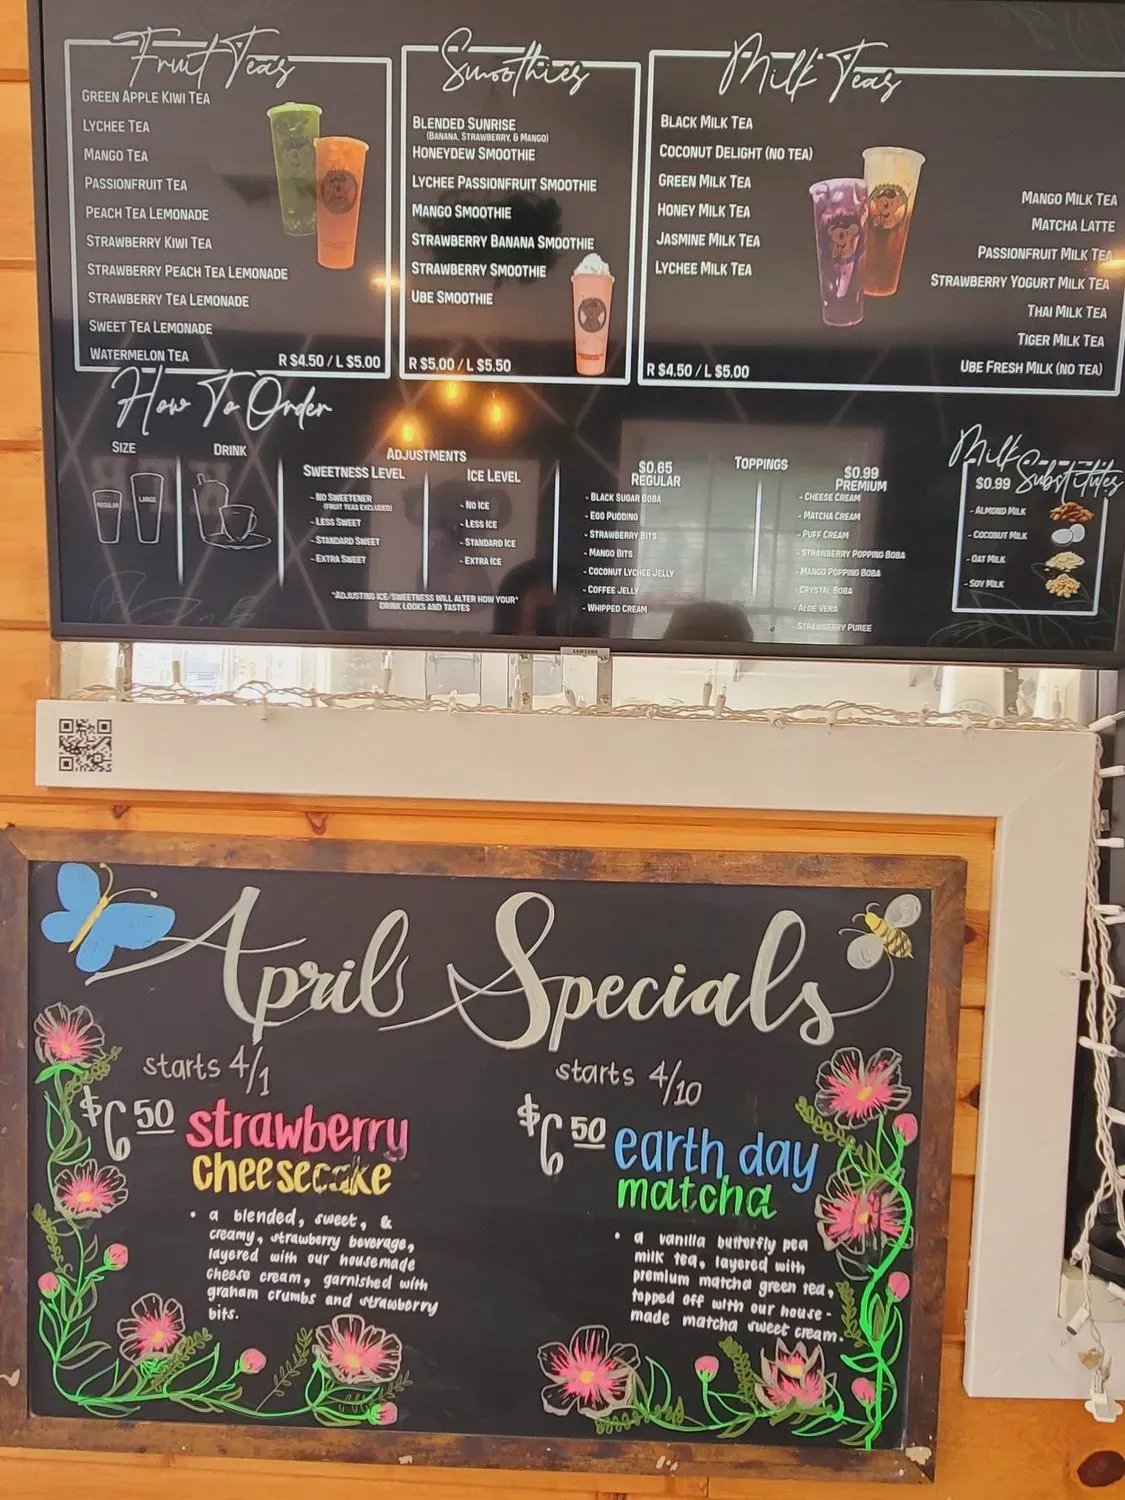 Fruit Teas
Green Apple Kiwi Tea
Lychee Tea
Mango Tea
Passionfruit Tea
Peach Tea Lemonade
Strawberry Kiwi Tea
Strawberry Peach Tea Lemonade
Strawberry Tea Lemonade
Sweet Tea Lemonade
Watermelon Tea
R $4.50 / L $5.00
Smoothies
Blended Sunrise
(Banana, Strawberry, & Mango)
Honeydew Smoothie
Lychee Passionfruit Smoothie
Mango Smoothie
Strawberry Banana Smoothie
Strawberry Smoothie
Ube Smoothie
R $5.00 / L $5.50
Milk Teas
Black Milk Tea
Coconut Delight (No Tea)
Green Milk Tea
Honey Milk Tea
Jasmine Milk Tea
Lychee Milk Tea
Mango Milk Tea
Matcha Latte
Passionfruit Milk Tea
Strawberry Yogurt Milk Tea
Thai Milk Tea
Tiger Milk Tea
Ube Fresh Milk (No Tea)
R $4.50 / L $5.00
How To Order
Size
Regular
Large
Drink
Adjustments
Sweetness Level
- No Sweetener
(Fruit Teas Excluded)
- Less Sweet
- Standard Sweet
- Extra Sweet
Ice Level
- No Ice
- Less Ice
- Standard Ice
- Extra Ice
"Adjusting ice/sweetness will alter how your"
drink looks and tastes
Toppings
$0.65
Regular
- Black Sugar Boba
- Egg Pudding
- Strawberry Bits
- Mango Bits
- Coconut Lychee Jelly
- Coffee Jelly
- Whipped Cream
$0.99
Premium
- Cheese Cream
- Matcha Cream
- Puff Cream
- Strawberry Popping Boba
- Mango Popping Boba
- Crystal Boba
- Aloe Vera
- Strawberry Puree
Milk Substitutes
$0.99
- Almond Milk
- Coconut Milk
- Oat Milk
- Soy Milk
SAMSUNG
April Specials
starts 4/1
$6 50 strawberry
cheesecake
• a blended, sweet, &
creamy, strawberry beverage,
layered with our housemade
cheese cream, garnished with
graham crumbs and strawberry
bits.
starts 4/10
$6 50 earth day
matcha
• a vanilla butterfly pea
milk tea, layered with
premium matcha green tea,
topped off with our house-
made matcha sweet cream.